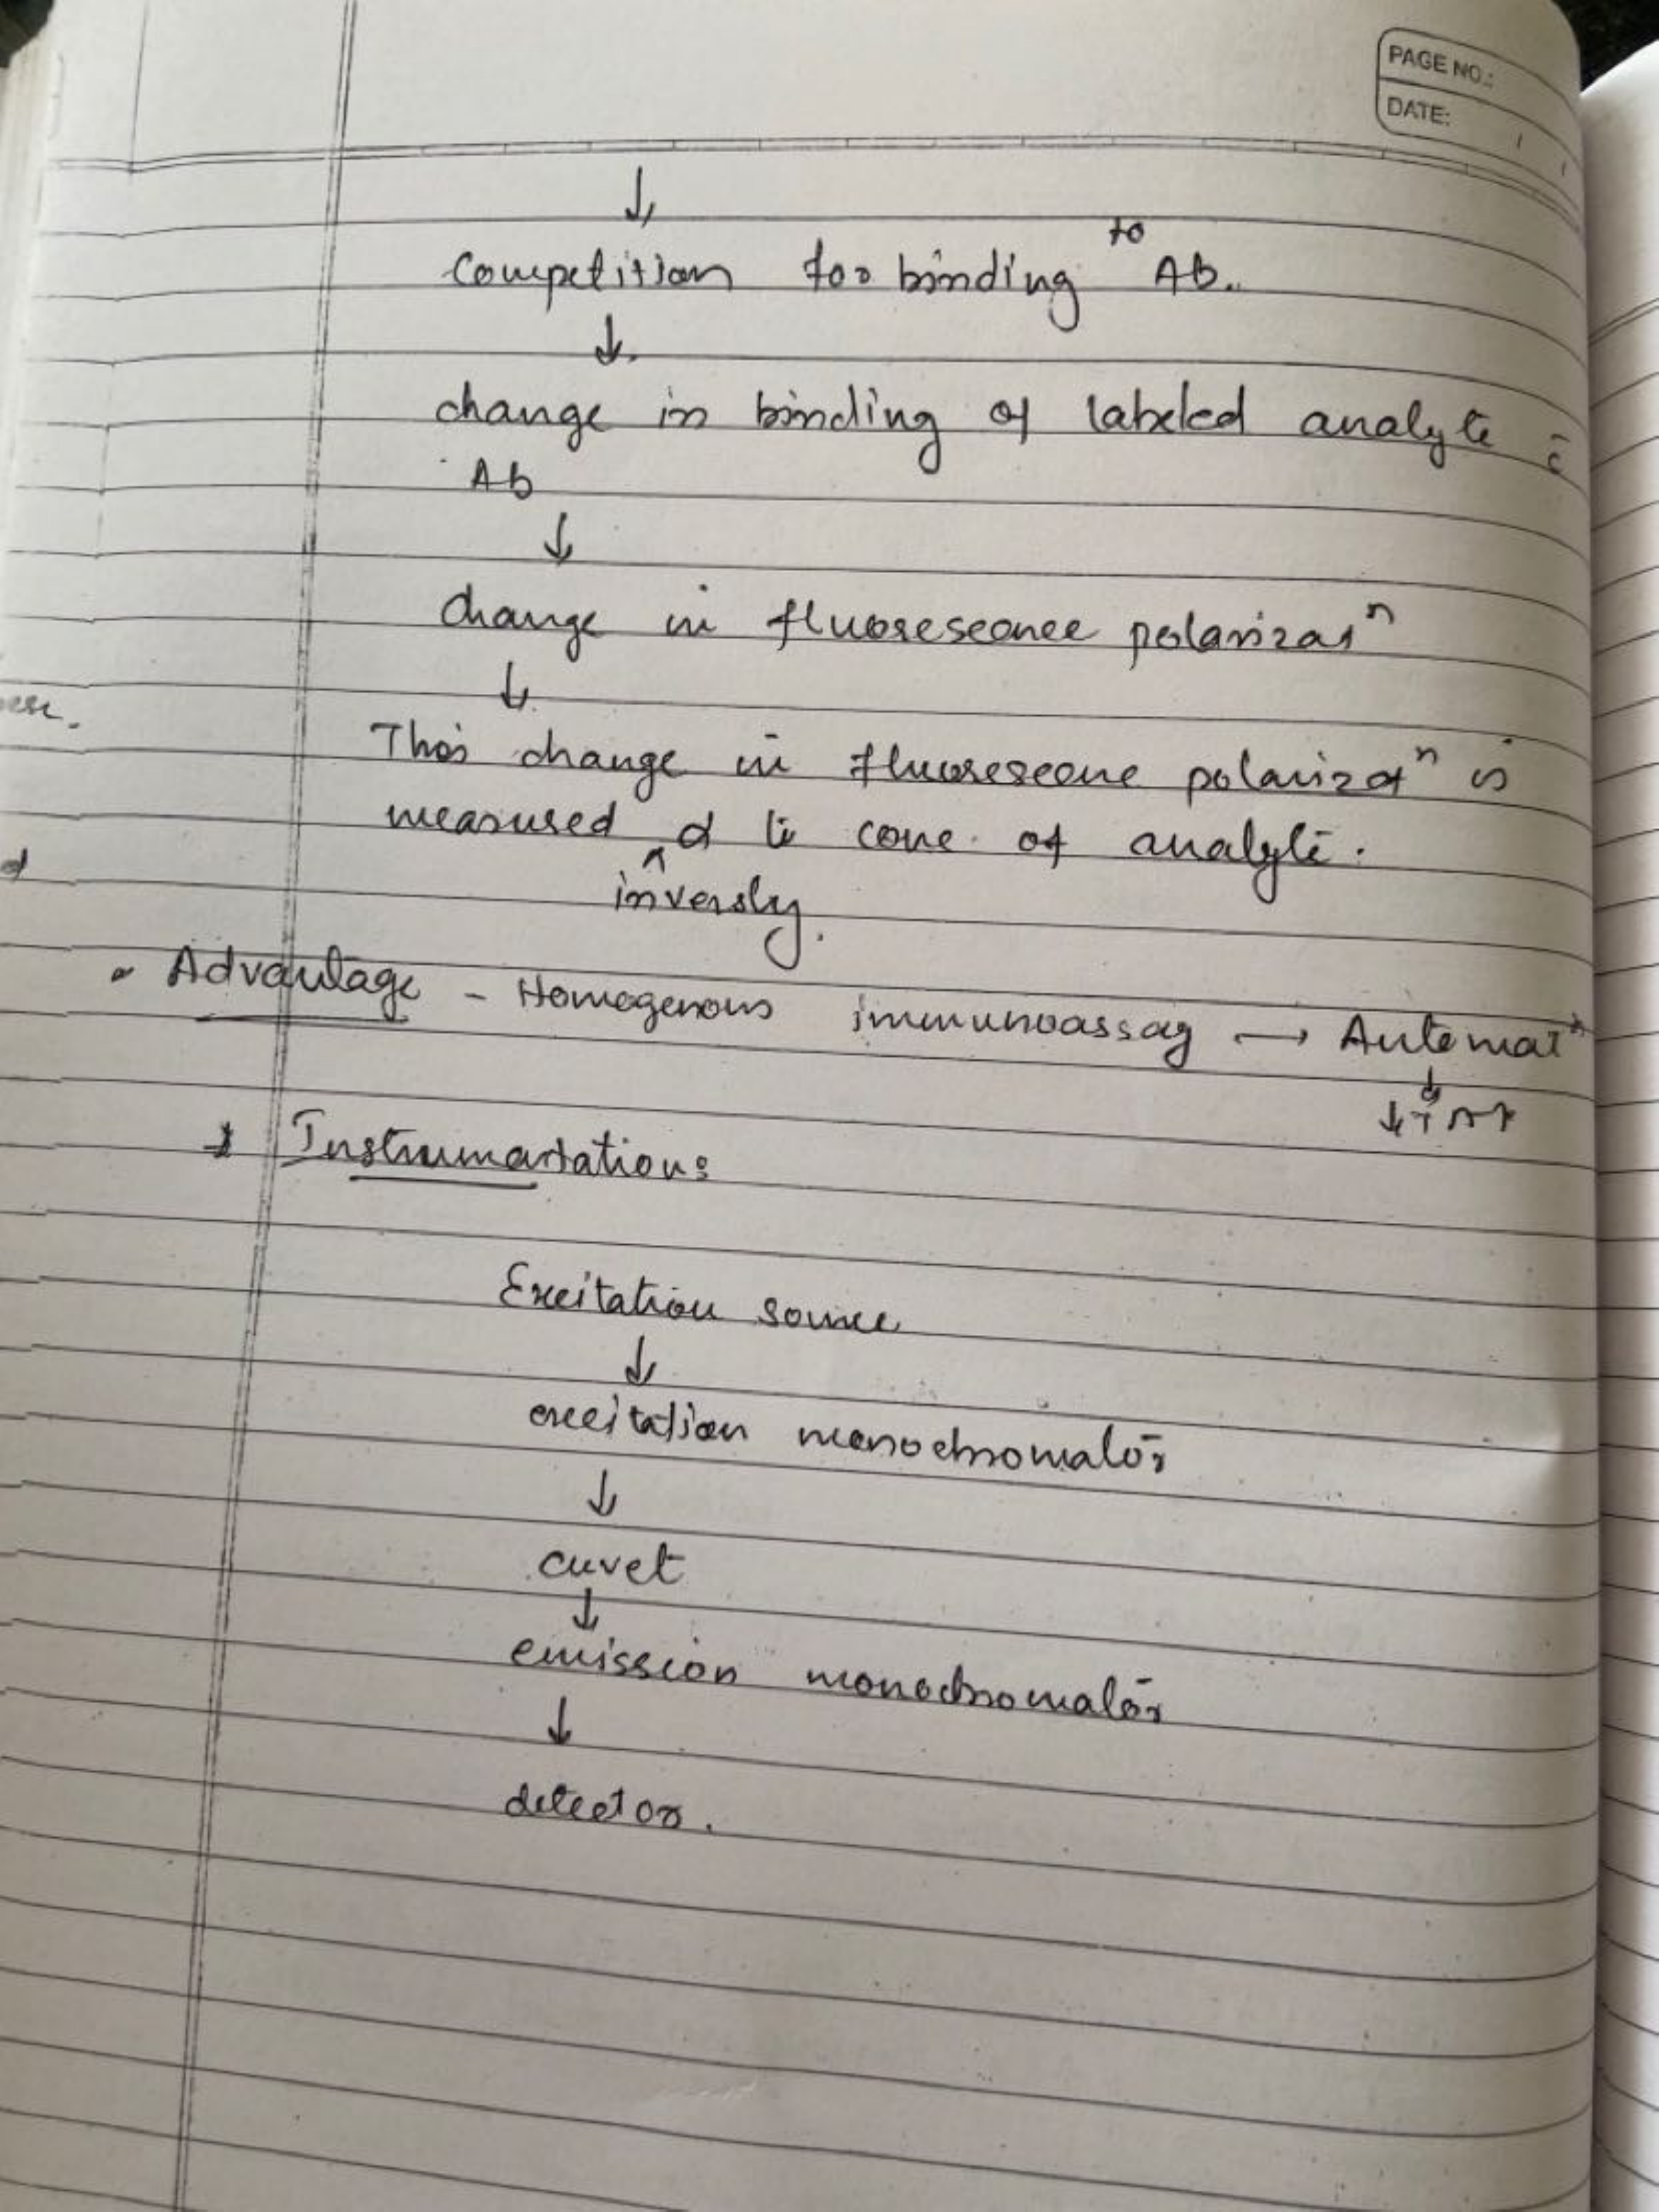 PAGE NO.:
DATE: / /
↓
Competition for binding to Ab.
↓
change in binding of labeled analyte c̄
Ab
↓
Change in fluorescence polarizatⁿ
↓
This change in fluorescence polarizatⁿ is
measured ^ α to conc. of analyte.
inversly.
• Advantage - Homogenous immunoassay → Automatⁿ
↓
↓TAT
Instrumentation:
Excitation source
↓
excitation monochromator
↓
cuvet
↓
emission monochromator
↓
detector.